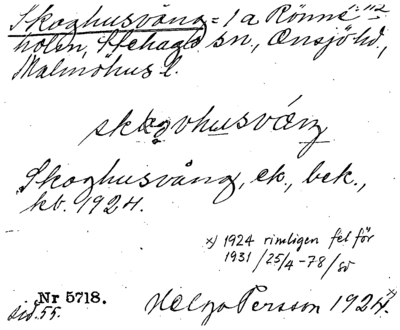 Skoghusvång = 1 a Rönne- 1:112
holm, Stehags sn., Onsjö hd,
Malmöhus l.
Skoghusvång, ek., bek.,
kb. 1924.
x) 1924 rimligen fel för
1931 /25/4-78/
Nr 5718.
sid. 55.
Helga Persson 1924. x)